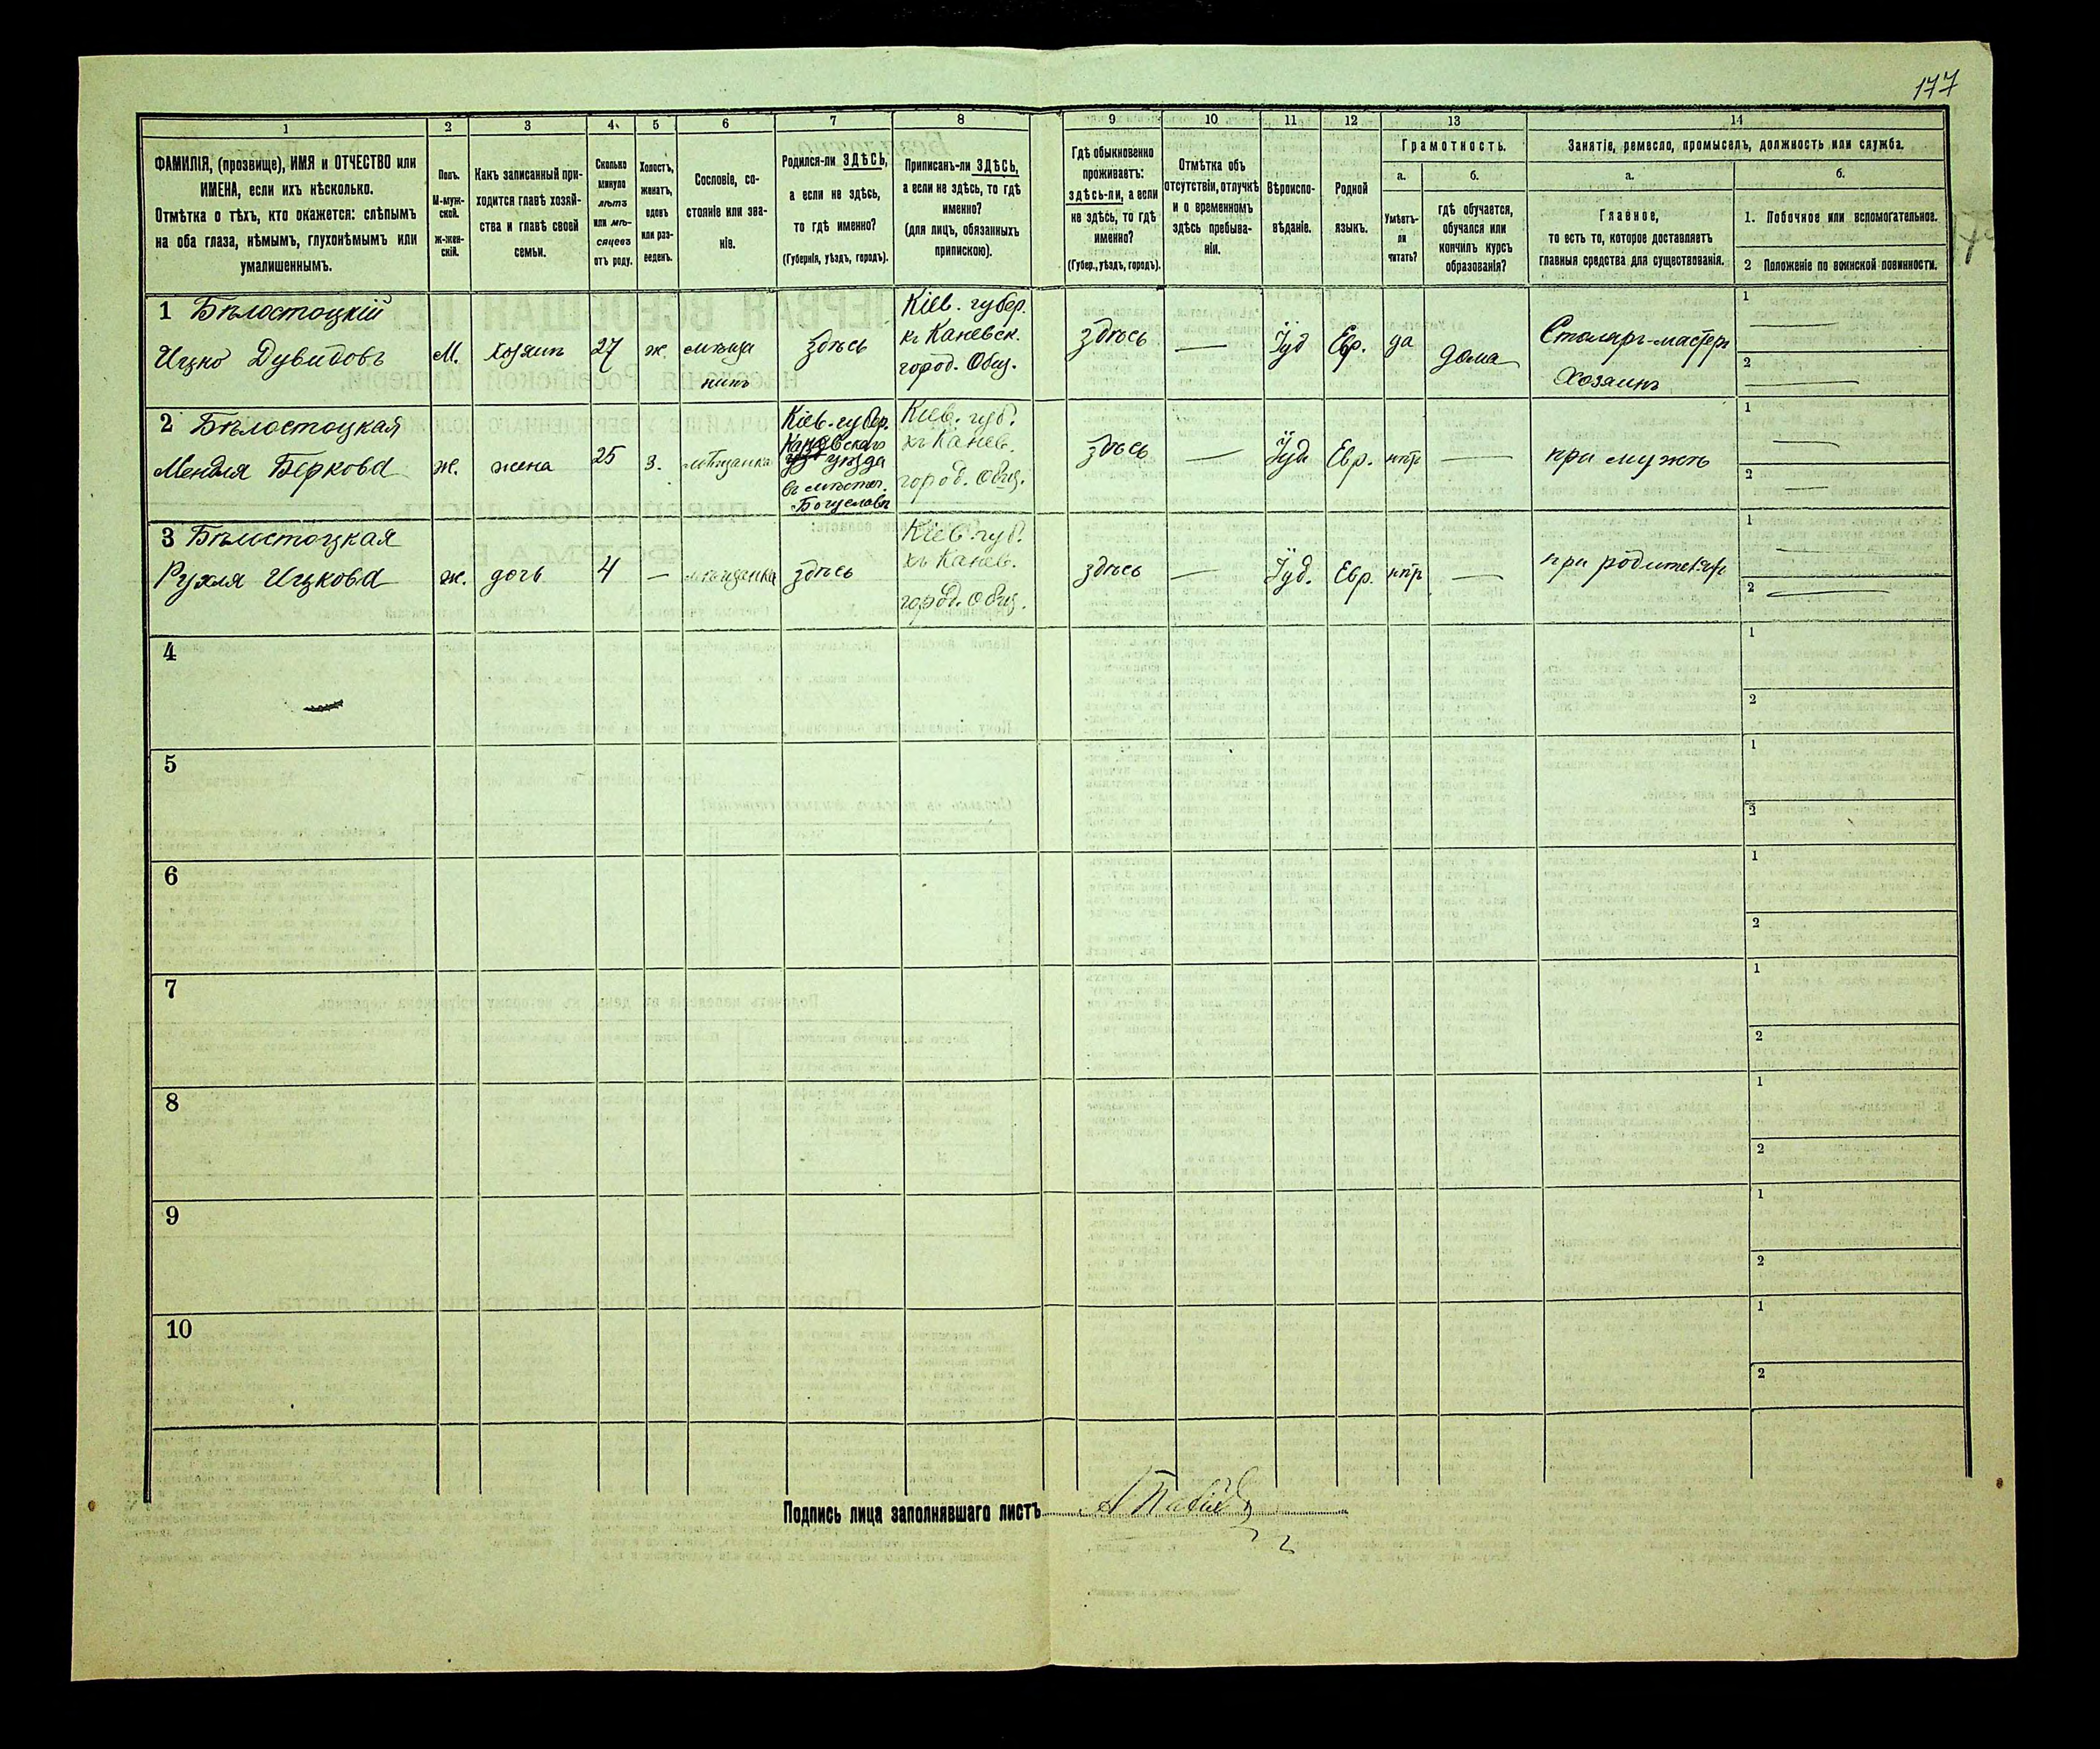 177
1
2
3
4
5
6
7
8
9
10
11
12
13
14
ФАМИЛІЯ, (прозвище), ИМЯ и ОТЧЕСТВО или
ИМЕНА, если ихъ нѣсколько.
Отмѣтка о тѣхъ, кто окажется: слѣпымъ
на оба глаза, нѣмымъ, глухонѣмымъ или
умалишеннымъ.
Полъ.
М-муж-
ской.
ж-жен-
скій.
Какъ записанный при-
ходится главѣ хозяй-
ства и главѣ своей
семьи.
Сколько
минуло
лѣтъ
или мѣ-
сяцевъ
отъ роду.
Холостъ,
женатъ,
вдовъ
или раз-
веденъ.
Сословіе, со-
стояніе или зва-
ніе.
Родился-ли ЗДѢСЬ,
а если не здѣсь,
то гдѣ именно?
(Губернія, уѣздъ, городъ).
Приписанъ-ли ЗДѢСЬ,
а если не здѣсь, то гдѣ
именно?
(для лицъ, обязанныхъ
припискою).
Гдѣ обыкновенно
проживаетъ:
здѣсь-ли, а если
не здѣсь, то гдѣ
именно?
(Губер., уѣздъ, городъ).
Отмѣтка объ
отсутствіи, отлучкѣ
и о временномъ
здѣсь пребыва-
ніи.
Вѣроиспо-
вѣданіе.
Родной
языкъ.
Грамотность.
а.
Умѣетъ-
ли
читать?
б.
гдѣ обучается,
обучался или
кончилъ курсъ
образованія?
Занятіе, ремесло, промыселъ, должность или служба.
а.
Главное,
то есть то, которое доставляетъ
главныя средства для существованія.
б.
1. Побочное или вспомогательное.
2 Положеніе по воинской повинности.
1 Бѣлостоцкій
Ицко Дувидовъ
М.
хозяинъ
27
ж.
мѣща
нинъ
здѣсь
Кіев. губер.
къ Каневск.
город. Общ.
здѣсь
—
Іуд
Евр.
да
дома
Столяръ-мастеръ
Хозяинъ
1 —
2 —
2 Бѣлостоцкая
Мендля Беркова
ж.
жена
25
з.
мѣщанка
Кіев. губер.
Каневскаго
уѣзда
въ мѣстеч.
Богуславѣ
Кіев. губ.
къ Канев.
город. Общ.
здѣсь
—
Іуд
Евр.
нѣтъ
—
при мужѣ
1 —
2 —
3 Бѣлостоцкая
Рухля Ицкова
ж.
дочь
4
—
мѣщанка
здѣсь
Кіев. губ.
къ Канев.
город. Общ.
здѣсь
—
Іуд.
Евр.
нѣтъ
—
при родителяхъ
1 —
2 —
4
1
2
5
1
2
6
1
2
7
1
2
8
1
2
9
1
2
10
1
2
Подпись лица заполнявшаго листъ